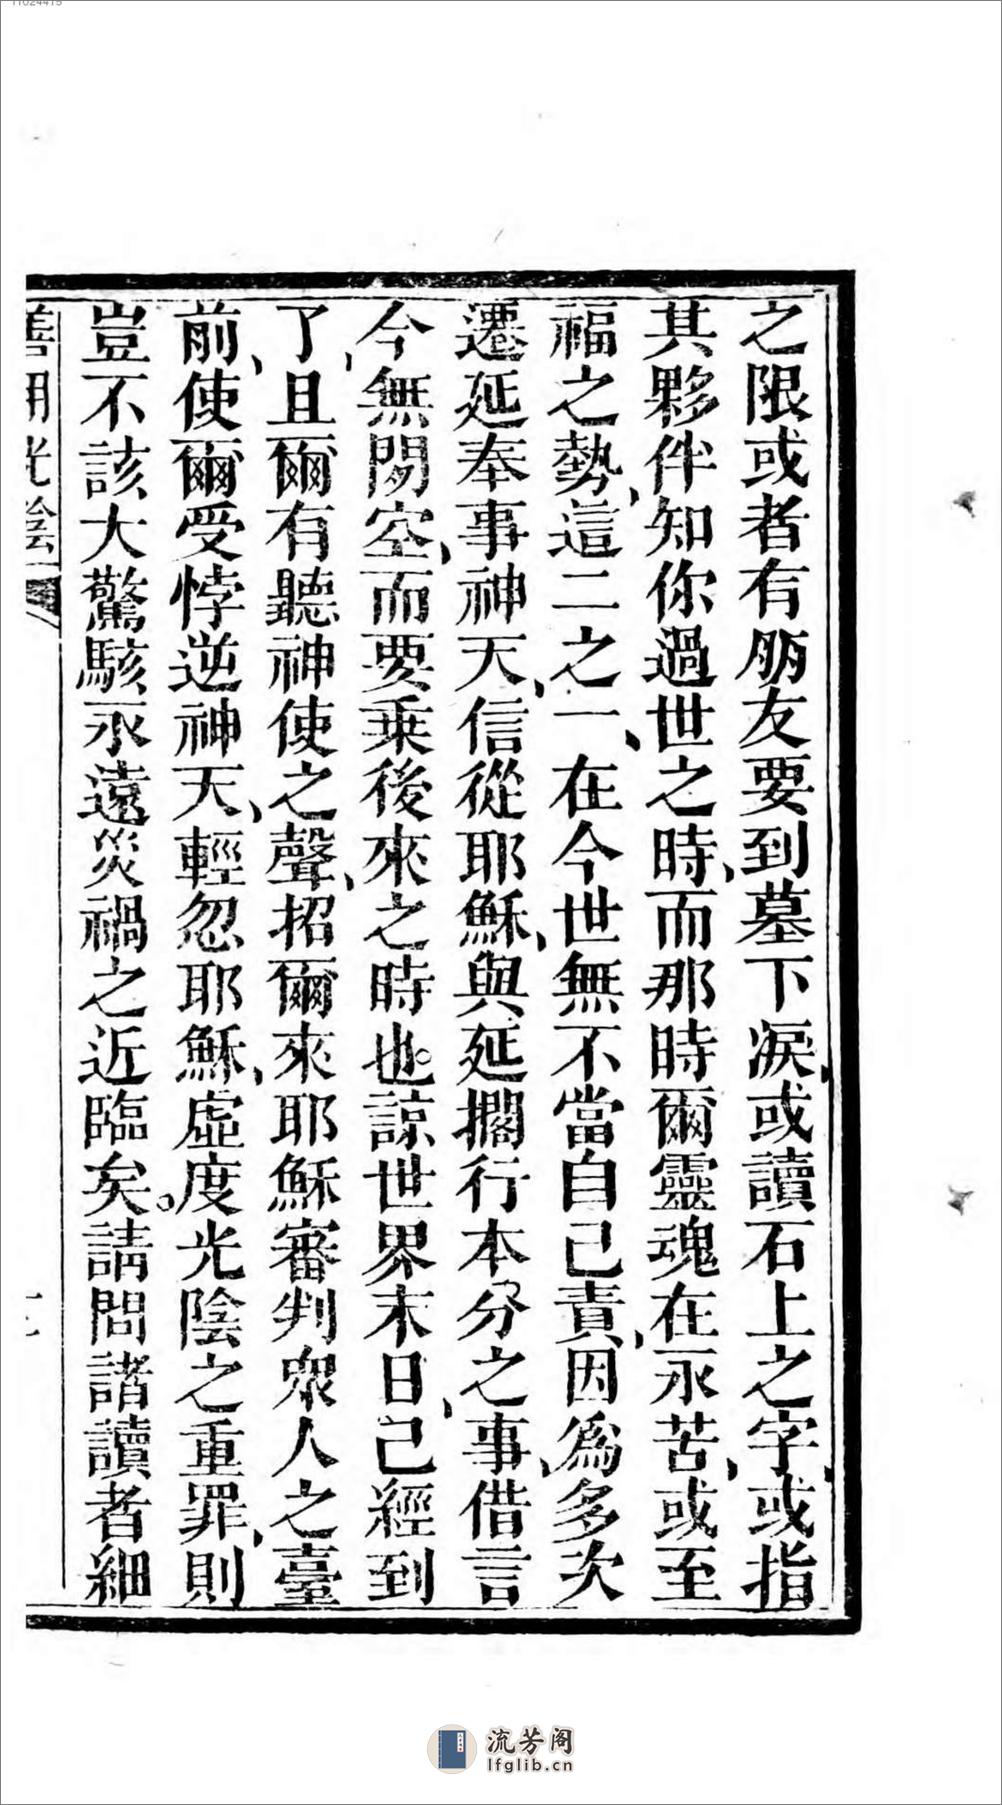 之限或者有朋友要到墓下淚、或讀石上之字、或指
其夥伴知你過世之時、而那時爾靈魂在永苦、或至
福之勢、這二之一、在今世無不當自己責、因爲多次
遷延奉事神天、信從耶穌、與延擱行本分之事、借言
今無閒空、而要乗後來之時也。諒世界末日、己經到
了、且爾有聽神使之聲、招爾來耶穌審判衆人之臺
前、使爾受悖逆神天、輕忽耶穌、虛度光陰之重罪、則
豈不該大驚駭永遠災禍之近臨矣。請問諸讀者細
善用光陰
流芳阁
lfglib.cn